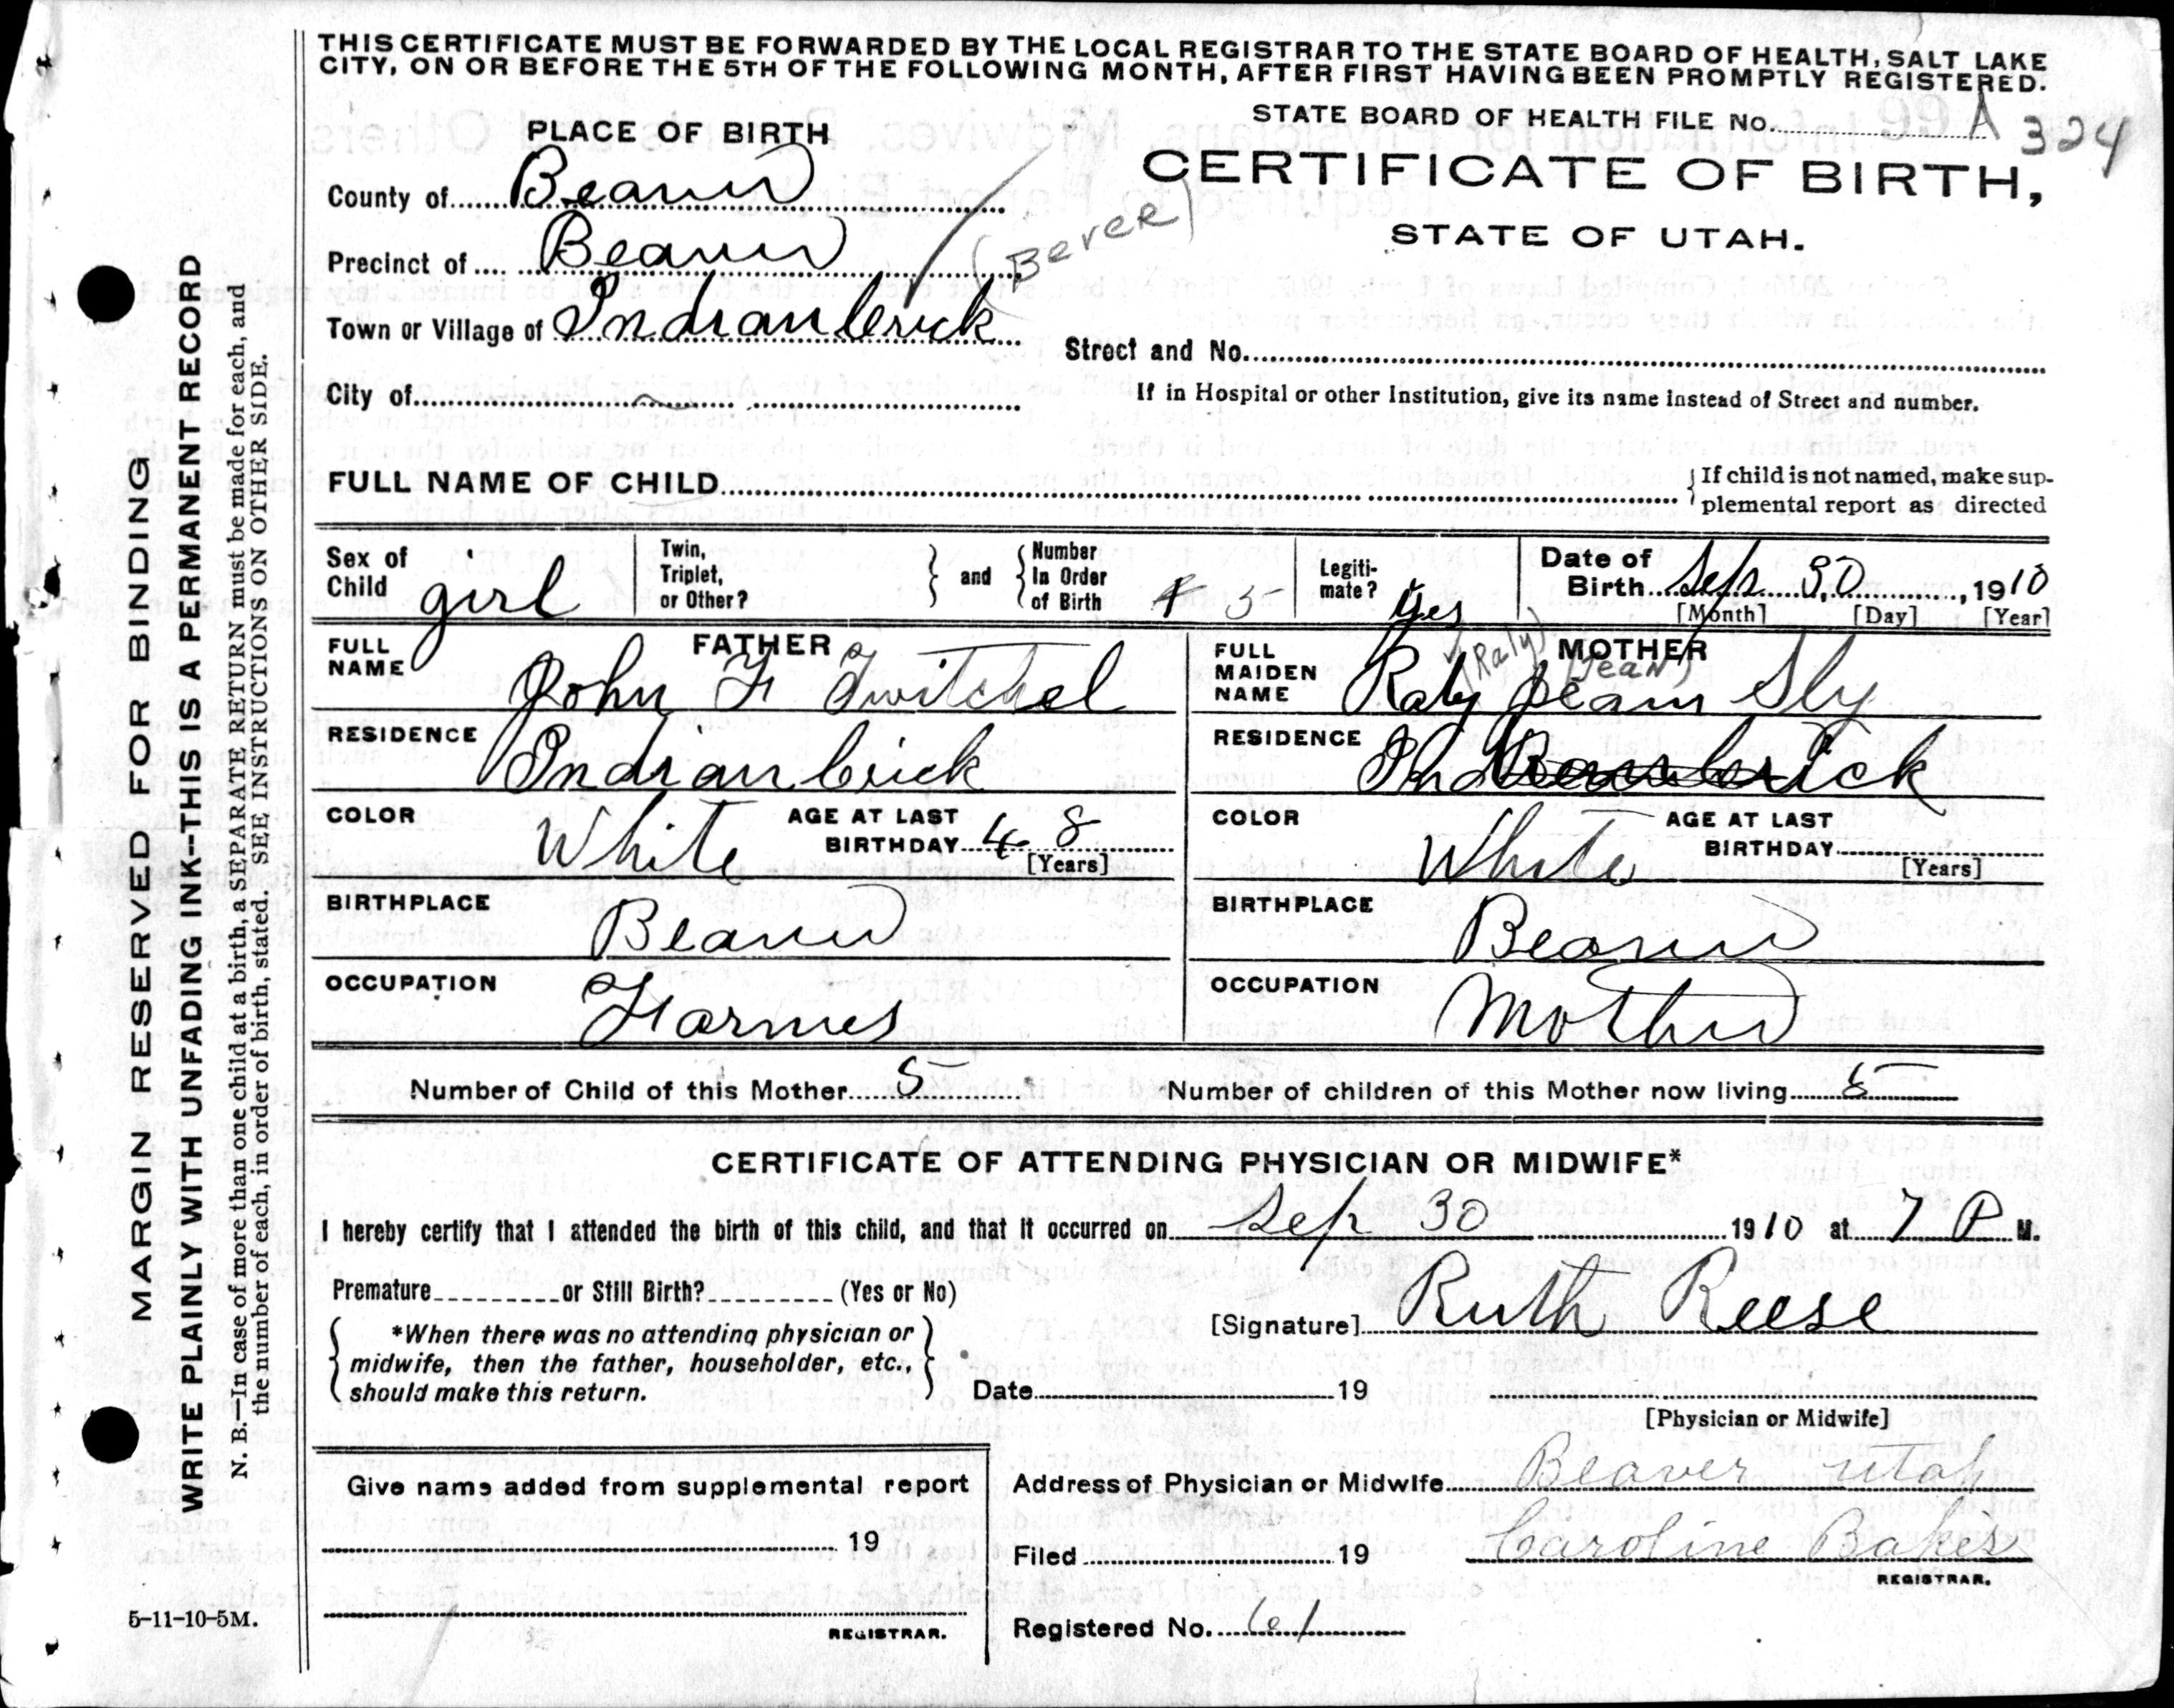 THIS CERTIFICATE MUST BE FORWARDED BY THE LOCAL REGISTRAR TO THE STATE BOARD OF HEALTH, SALT LAKE
CITY, ON OR BEFORE THE 5TH OF THE FOLLOWING MONTH, AFTER FIRST HAVING BEEN PROMPTLY REGISTERED.
STATE BOARD OF HEALTH FILE No. 99 A 324
PLACE OF BIRTH
CERTIFICATE OF BIRTH,
STATE OF UTAH.
County of Beaver
Precinct of Beaver
Town or Village of Indiancrick
Street and No.
City of
If in Hospital or other Institution, give its name instead of Street and number.
FULL NAME OF CHILD
If child is not named, make sup-
plemental report as directed
Sex of Child girl
Twin, Triplet, or Other?
and
Number In Order of Birth 4 5
Legiti-mate? Yes
Date of Birth Sep 30, 1910
[Month] [Day] [Year]
FATHER
FULL NAME John F Twitchel
RESIDENCE Indiancrick
COLOR White
AGE AT LAST BIRTHDAY 48
[Years]
BIRTHPLACE Beaver
OCCUPATION Farmer
MOTHER
(Raly) (Jean)
FULL MAIDEN NAME Raly Jean Sly
RESIDENCE
COLOR White
AGE AT LAST BIRTHDAY
[Years]
BIRTHPLACE Beaver
OCCUPATION Mother
Number of Child of this Mother 5
Number of children of this Mother now living 5
CERTIFICATE OF ATTENDING PHYSICIAN OR MIDWIFE*
I hereby certify that I attended the birth of this child, and that it occurred on Sep 30 1910 at 7 P M.
Premature or Still Birth? (Yes or No)
*When there was no attending physician or
midwife, then the father, householder, etc.,
should make this return.
[Signature] Ruth Reese
Date 19
[Physician or Midwife]
Give name added from supplemental report
19
REGISTRAR.
Address of Physician or Midwife Beaver Utah
Filed 19 Caroline Baker
REGISTRAR.
Registered No. 61
MARGIN RESERVED FOR BINDING
WRITE PLAINLY WITH UNFADING INK--THIS IS A PERMANENT RECORD
N. B.—In case of more than one child at a birth, a SEPARATE RETURN must be made for each, and
the number of each, in order of birth, stated. SEE INSTRUCTIONS ON OTHER SIDE.
5-11-10-5M.